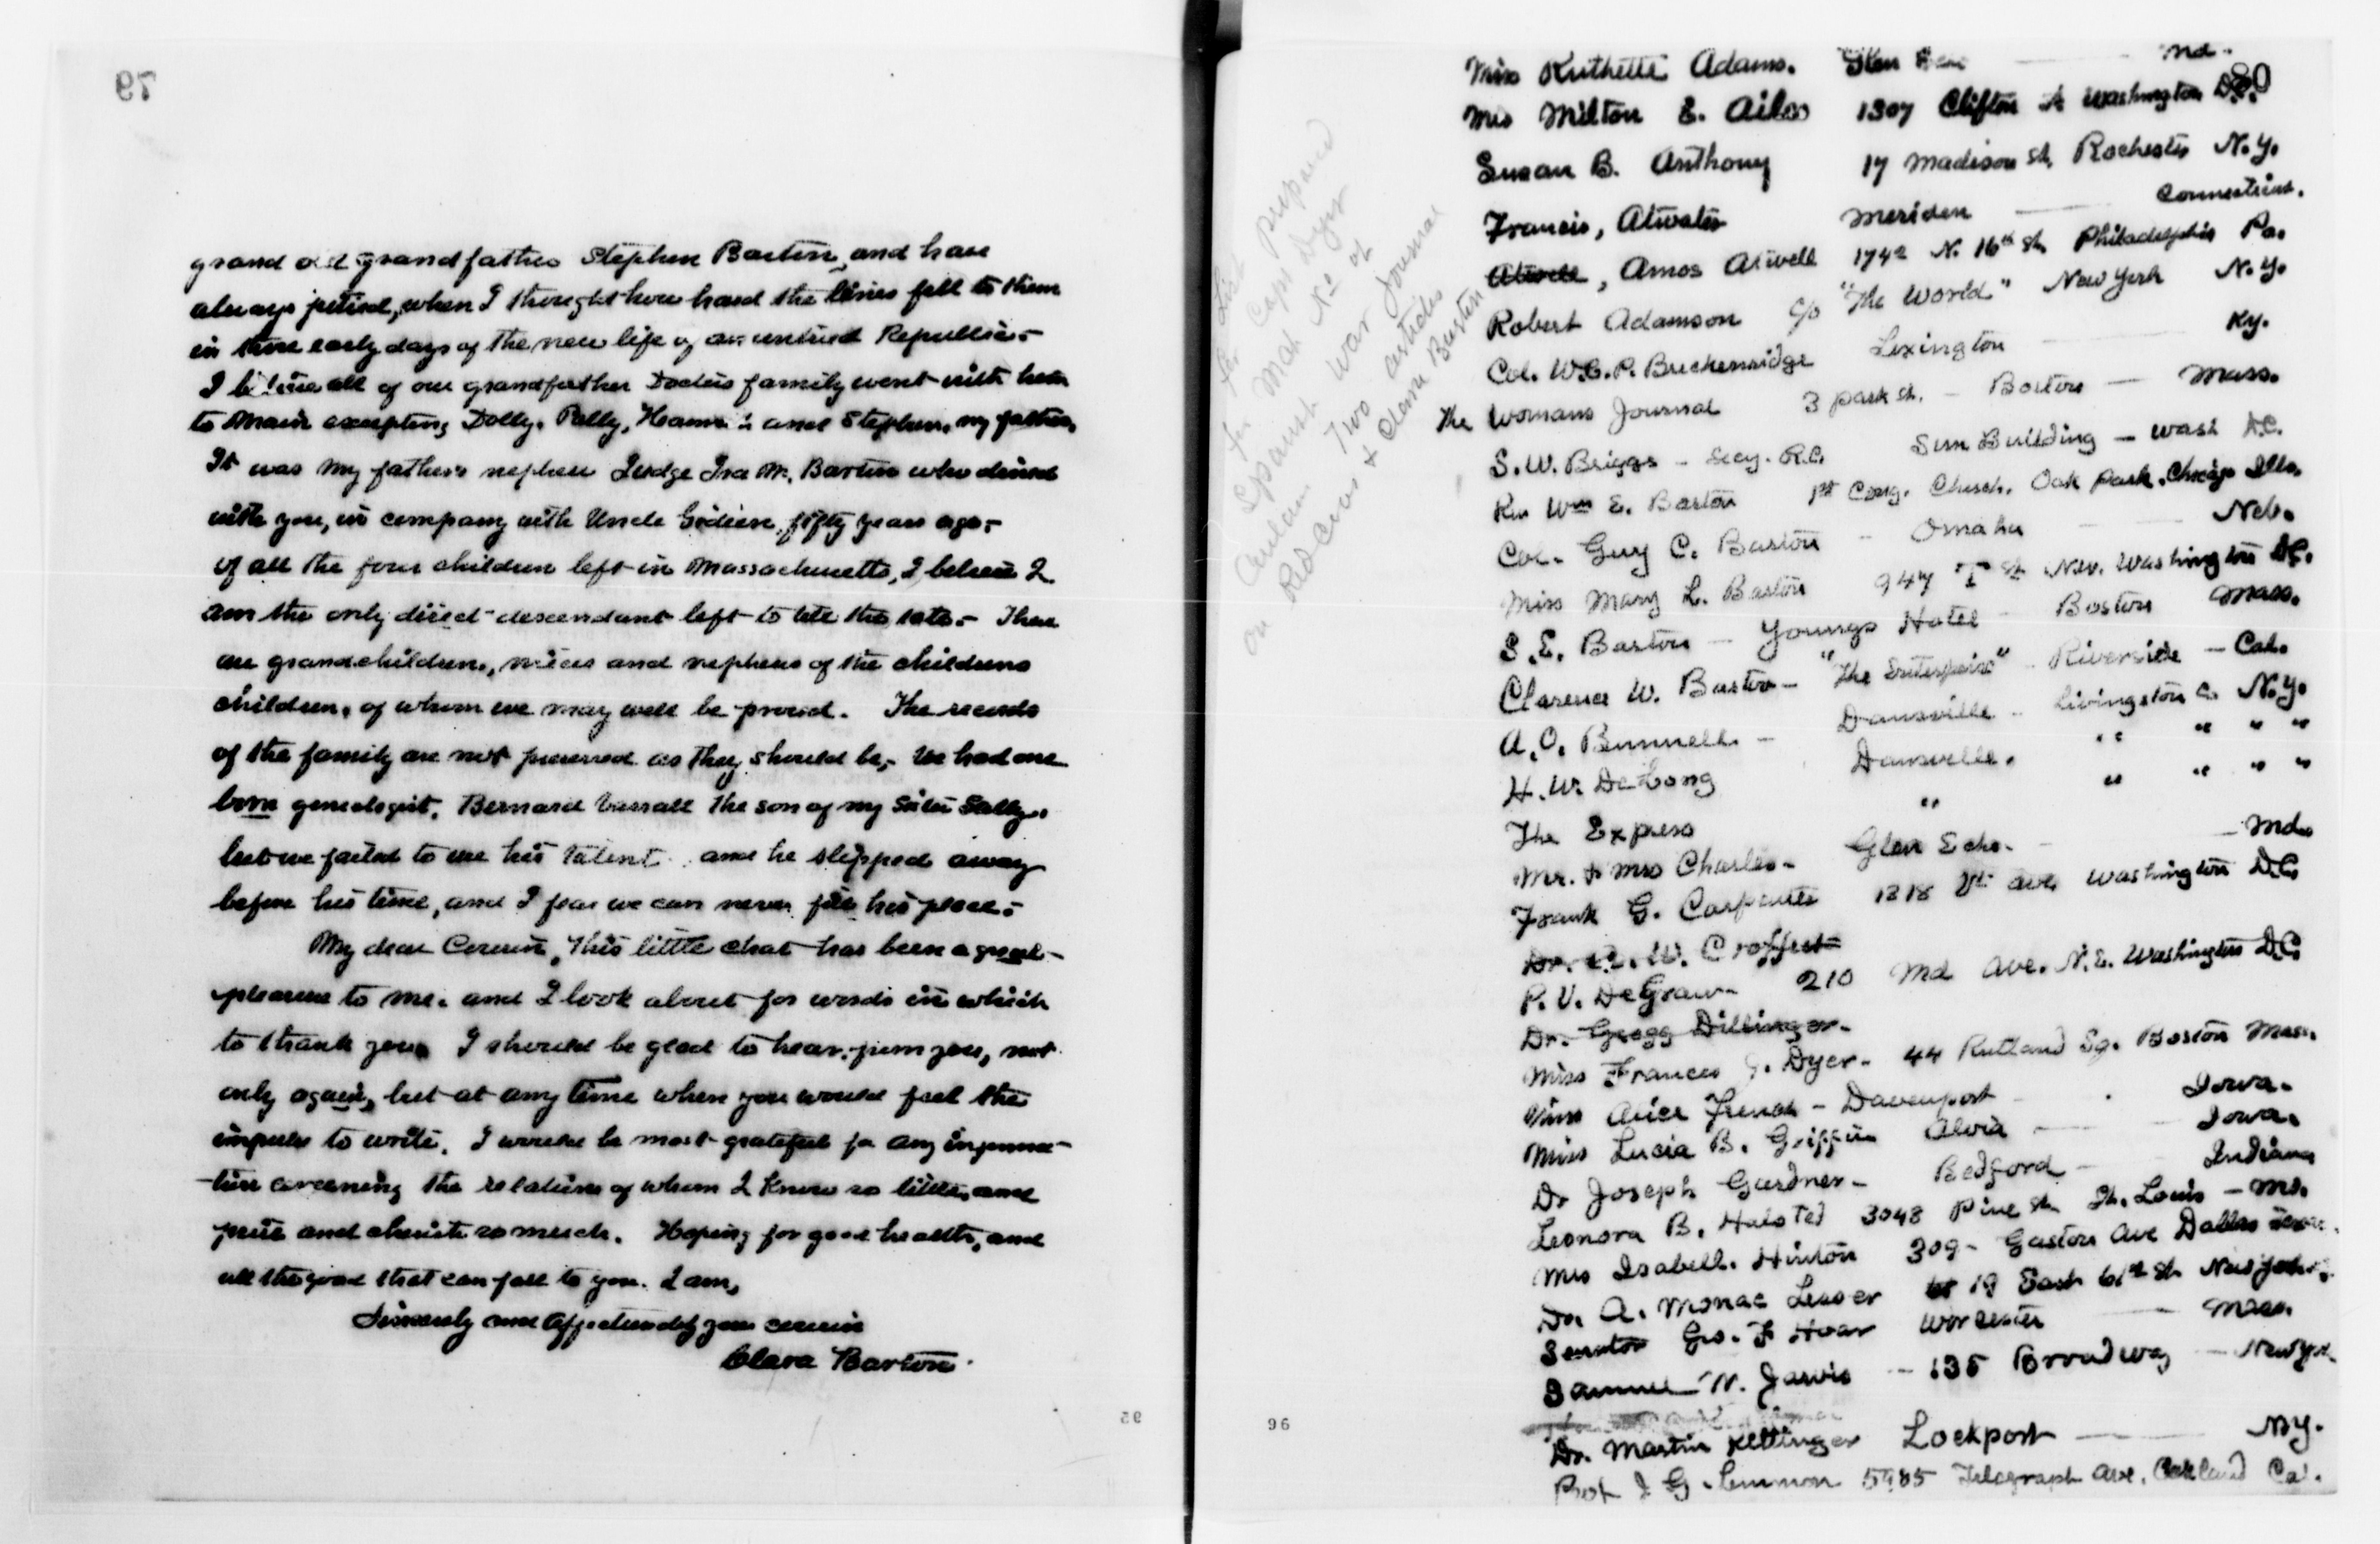 79
grand old grandfather Stephen Barton, and have
always pitied, when I thought how hard the lines fell to them
in those early days of the new life of an untried Republic.-
I believe all of our grandfather Doctors family went with him
to Maine excepting Dolly, Polly, Hannah and Stephen, my father.
It was my fathers nephew Judge Ira M. Barton who dined
with you, in company with Uncle Gideon, fifty years ago.-
of all the four children left in Massachusetts, I believe I
am the only direct descendant left to tell the tale.- There
are grandchildren, nieces and nephews of the childrens
children, of whom we may well be proud. The records
of the family are not preserved as they should be,- We had one
born geneologist, Bernard Vassall the son of my Sister Sally,
but we failed to use his talent and he slipped away
before his time, and I fear we can never fill his place.-
My dear Cousin, This little chat has been a great
pleasure to me. and I look about for words in which
to thank you I should be glad to hear from you, not
only again, but at any time when you would feel the
impulse to write. I would be most grateful for any informa-
-tion concerning the relations of whom I know so little, and
prize and cherish so much. Hoping for good health, and
all the good that can fall to you. I am,
Sincerely and affectionately your cousin
Clara Barton.
95
80
for List prepared
Capt Dyer
for Mch No of
Spanish War Journal
Two articles
on Red Cross & Clara Barton
Miss Ruthette Adams. Glen Echo Md.
Mrs Milton E. Ailes 1307 Clifton St Washington D.C.
Susan B. Anthony 17 Madison St, Rochester N.Y.
Francis, Atwater Meriden Connecticut.
Atwell, Amos Atwell 1742 N. 16th St Philadelphia Pa.
Robert Adamson c/o "The World" New York N.Y.
Col. W.C.P. Breckenridge Lexington Ky.
The Womans Journal 3 Park St. - Boston - Mass.
S.W. Briggs - Secy. R.C. Sun Building - Wash D.C.
Rev Wm E. Barton 1st Cong. Church. Oak Park, Chicago Ills.
Col. Guy C. Barton - Omaha Neb.
Miss Mary L. Barton 947 T St N.W. Washington D.C.
S.E. Barton - Youngs Hotel - Boston Mass.
Clarence W. Barton - "The Enterprise" - Riverside - Cal.
A.O. Bunnell - Dansville - Livingston Co. N.Y.
H.W. DeLong Dansville. " " " "
The Express " " " " "
Mr. & Mrs Charles - Glen Echo. - Md.
Frank G. Carpenter 1318 Vt Ave Washington D.C.
Dr. W. Croffert
P.V. DeGraw - 210 Md Ave. N.E. Washington D.C.
Dr. Gregg Dillinger.
Miss Frances J. Dyer - 44 Rutland Sq. Boston Mass.
Miss Alice French - Davenport - Iowa.
Miss Lucia B. Griffin Albia - Iowa.
Dr Joseph Gardner - Bedford - Indiana
Leonora B. Halsted 3048 Pine St. St. Louis - Mo.
Mrs Isabell. Hinton 309 - Gaston Ave Dallas Texas.
Dr. A. Monae Lesser 19 East 61st St New York.
Senator Geo. F Hoar Worcester Mass.
Samuel N. Jarvis - 135 Broadway - New York
Dr. Martin Kittinger Lockport N.Y.
Prof J G. Lemmon 5985 Telegraph Ave. Oakland Cal.
96